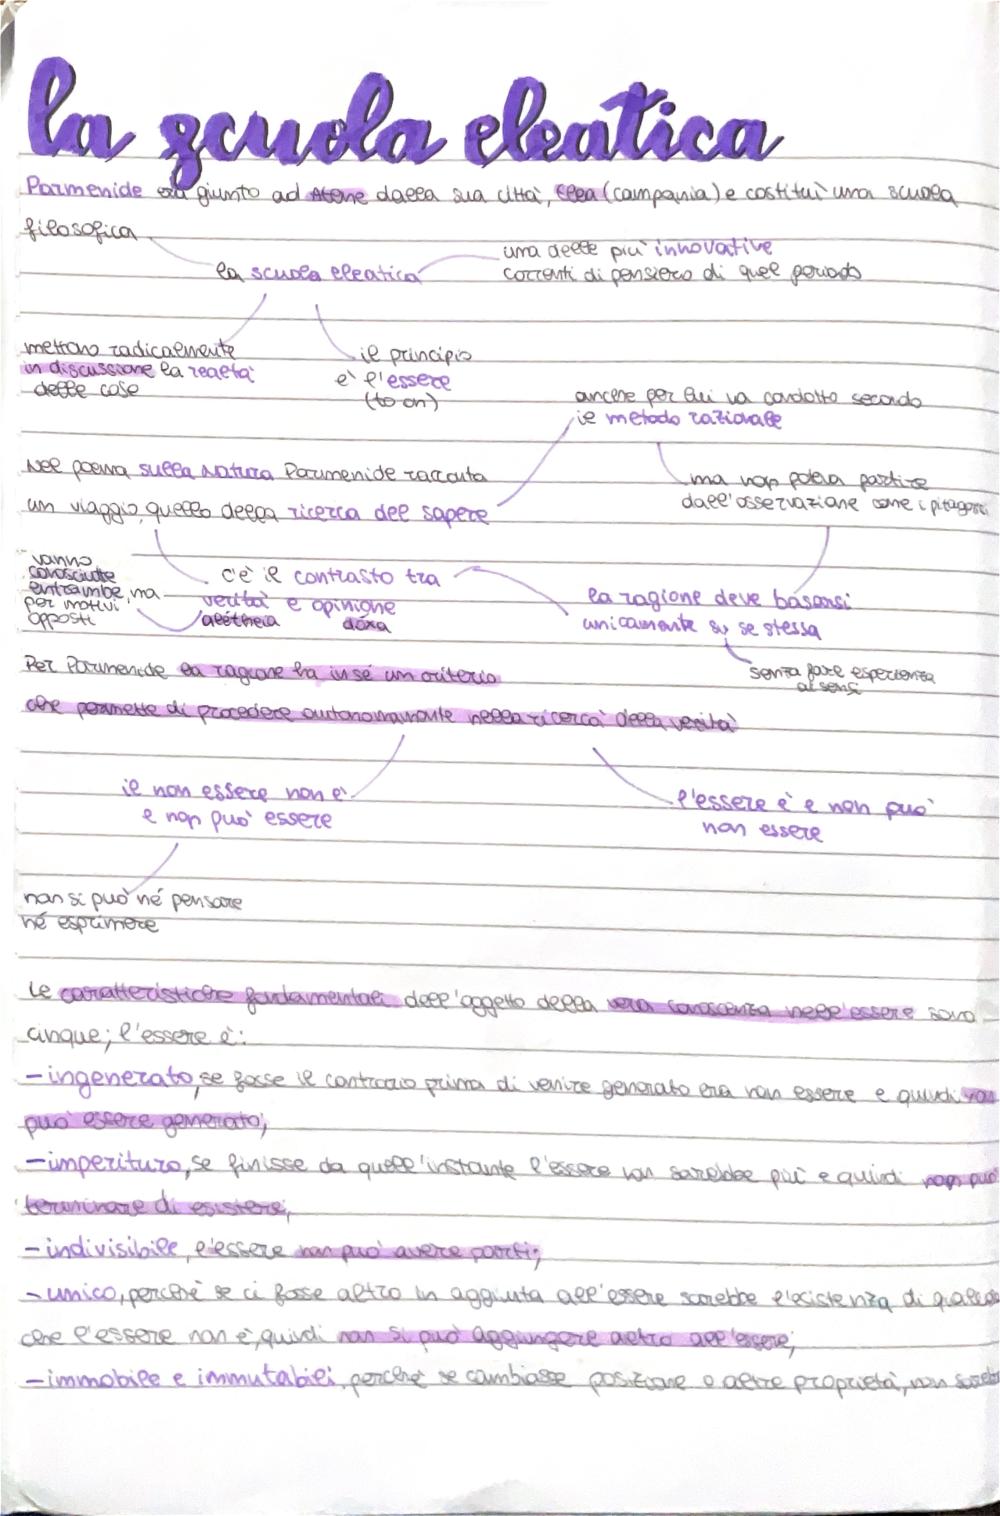 la scuola eleatica
Parmenide era giunto ad Atene dalla sua città, Elea (campania) e costituì una scuola
filosofica
la scuola eleatica
una delle più innovative
correnti di pensiero di quel periodo
mettono radicalmente
in discussione la realtà
delle cose
il principio
è l'essere
(to on)
anche per lui va condotto secondo
il metodo razionale
Nel poema sulla Natura Parmenide racconta
un viaggio, quello della ricerca del sapere
ma non poteva partire
dall'osservazione come i pitagorici
vanno
conosciute
entrambe, ma
per motivi
opposti
c'è il contrasto tra
verità e opinione
alétheia dóxa
la ragione deve basarsi
unicamente su se stessa
senza fare esperienza
ai sensi
Per Parmenide la ragione ha in sé un criterio
che permette di procedere autonomamente nella ricerca della verità
il non essere non è
e non può essere
l'essere è e non può
non essere
non si può né pensare
né esprimere
Le caratteristiche fondamentali dell'oggetto della vera conoscenza nell'essere sono
cinque; l'essere è:
- ingenerato, se fosse il contrario prima di venire generato era non essere e quindi non
può essere generato;
- imperituro, se finisse da quell'instante l'essere non sarebbe più e quindi non può
terminare di esistere;
- indivisibile, l'essere non può avere parti;
- unico, perché se ci fosse altro in aggiunta all'essere sarebbe l'esistenza di
che l'essere non è, quindi non si può aggiungere altro all'essere;
- immobile e immutabili, perché se cambiasse posizione o altre proprietà, non